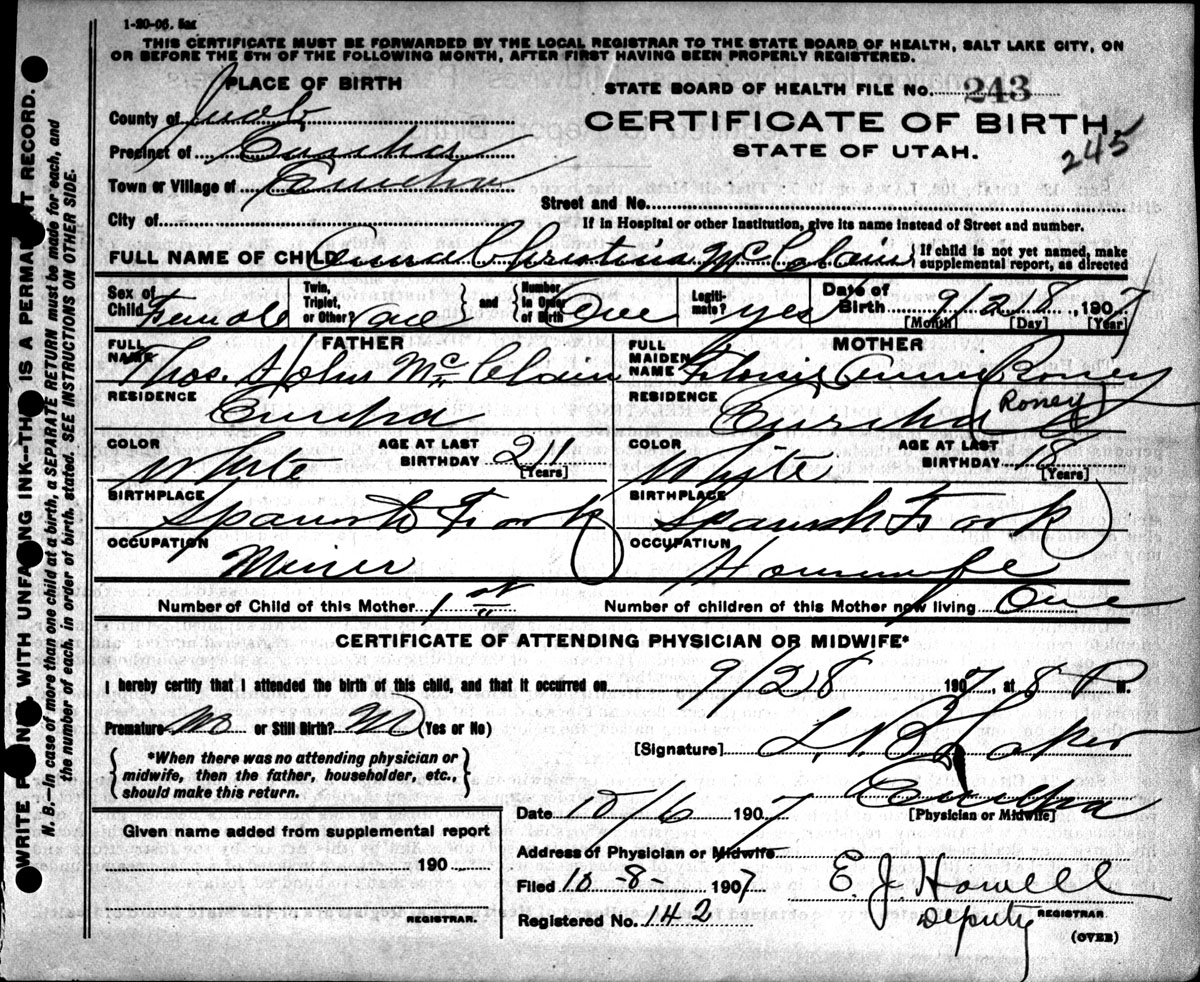 1-20-06. 5m
THIS CERTIFICATE MUST BE FORWARDED BY THE LOCAL REGISTRAR TO THE STATE BOARD OF HEALTH, SALT LAKE CITY, ON
OR BEFORE THE 5TH OF THE FOLLOWING MONTH, AFTER FIRST HAVING BEEN PROPERLY REGISTERED.
PLACE OF BIRTH
STATE BOARD OF HEALTH FILE No. 243
County of Juab
CERTIFICATE OF BIRTH
Precinct of Eureka
STATE OF UTAH.
245
Town or Village of Eureka
Street and No.
City of
If in Hospital or other Institution, give its name instead of Street and number.
FULL NAME OF CHILD Anna Christina McClain { If child is not yet named, make supplemental report, as directed
Sex of Child Female Twin, Triplet, or Other one and Number in Order of Birth One Legitimate? yes Date of Birth 9/28, 1907
[Month] [Day] [Year]
FATHER
FULL NAME Thos. John McClain
RESIDENCE Eureka
COLOR White AGE AT LAST BIRTHDAY 21 [Years]
BIRTHPLACE Spanish Fork
OCCUPATION Miner
MOTHER
FULL MAIDEN NAME Annie Roney
(Roney)
RESIDENCE Eureka
COLOR White AGE AT LAST BIRTHDAY 18 [Years]
BIRTHPLACE Spanish Fork
OCCUPATION Housewife
Number of Child of this Mother 1st Number of children of this Mother now living One
CERTIFICATE OF ATTENDING PHYSICIAN OR MIDWIFE*
I hereby certify that I attended the birth of this child, and that it occurred on 9/28 1907, at 8 P. M.
Premature No or Still Birth? No (Yes or No)
[Signature] L. B. Laker
*When there was no attending physician or
midwife, then the father, householder, etc.,
should make this return.
Eureka
[Physician or Midwife]
Date 10/6 1907
Given name added from supplemental report
190
REGISTRAR.
Address of Physician or Midwife
Filed 10-8- 1907
E. J. Howell
Deputy REGISTRAR
Registered No. 142
(OVER)
WRITE PLAINLY WITH UNFADING INK—THIS IS A PERMANENT RECORD.
N. B.—In case of more than one child at a birth, a SEPARATE RETURN must be made for each, and
the number of each, in order of birth, stated. SEE INSTRUCTIONS ON OTHER SIDE.